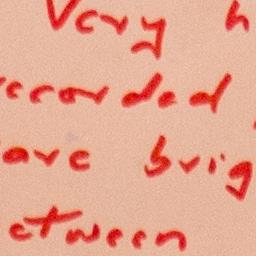 Very h
recorded
ave brig
etween